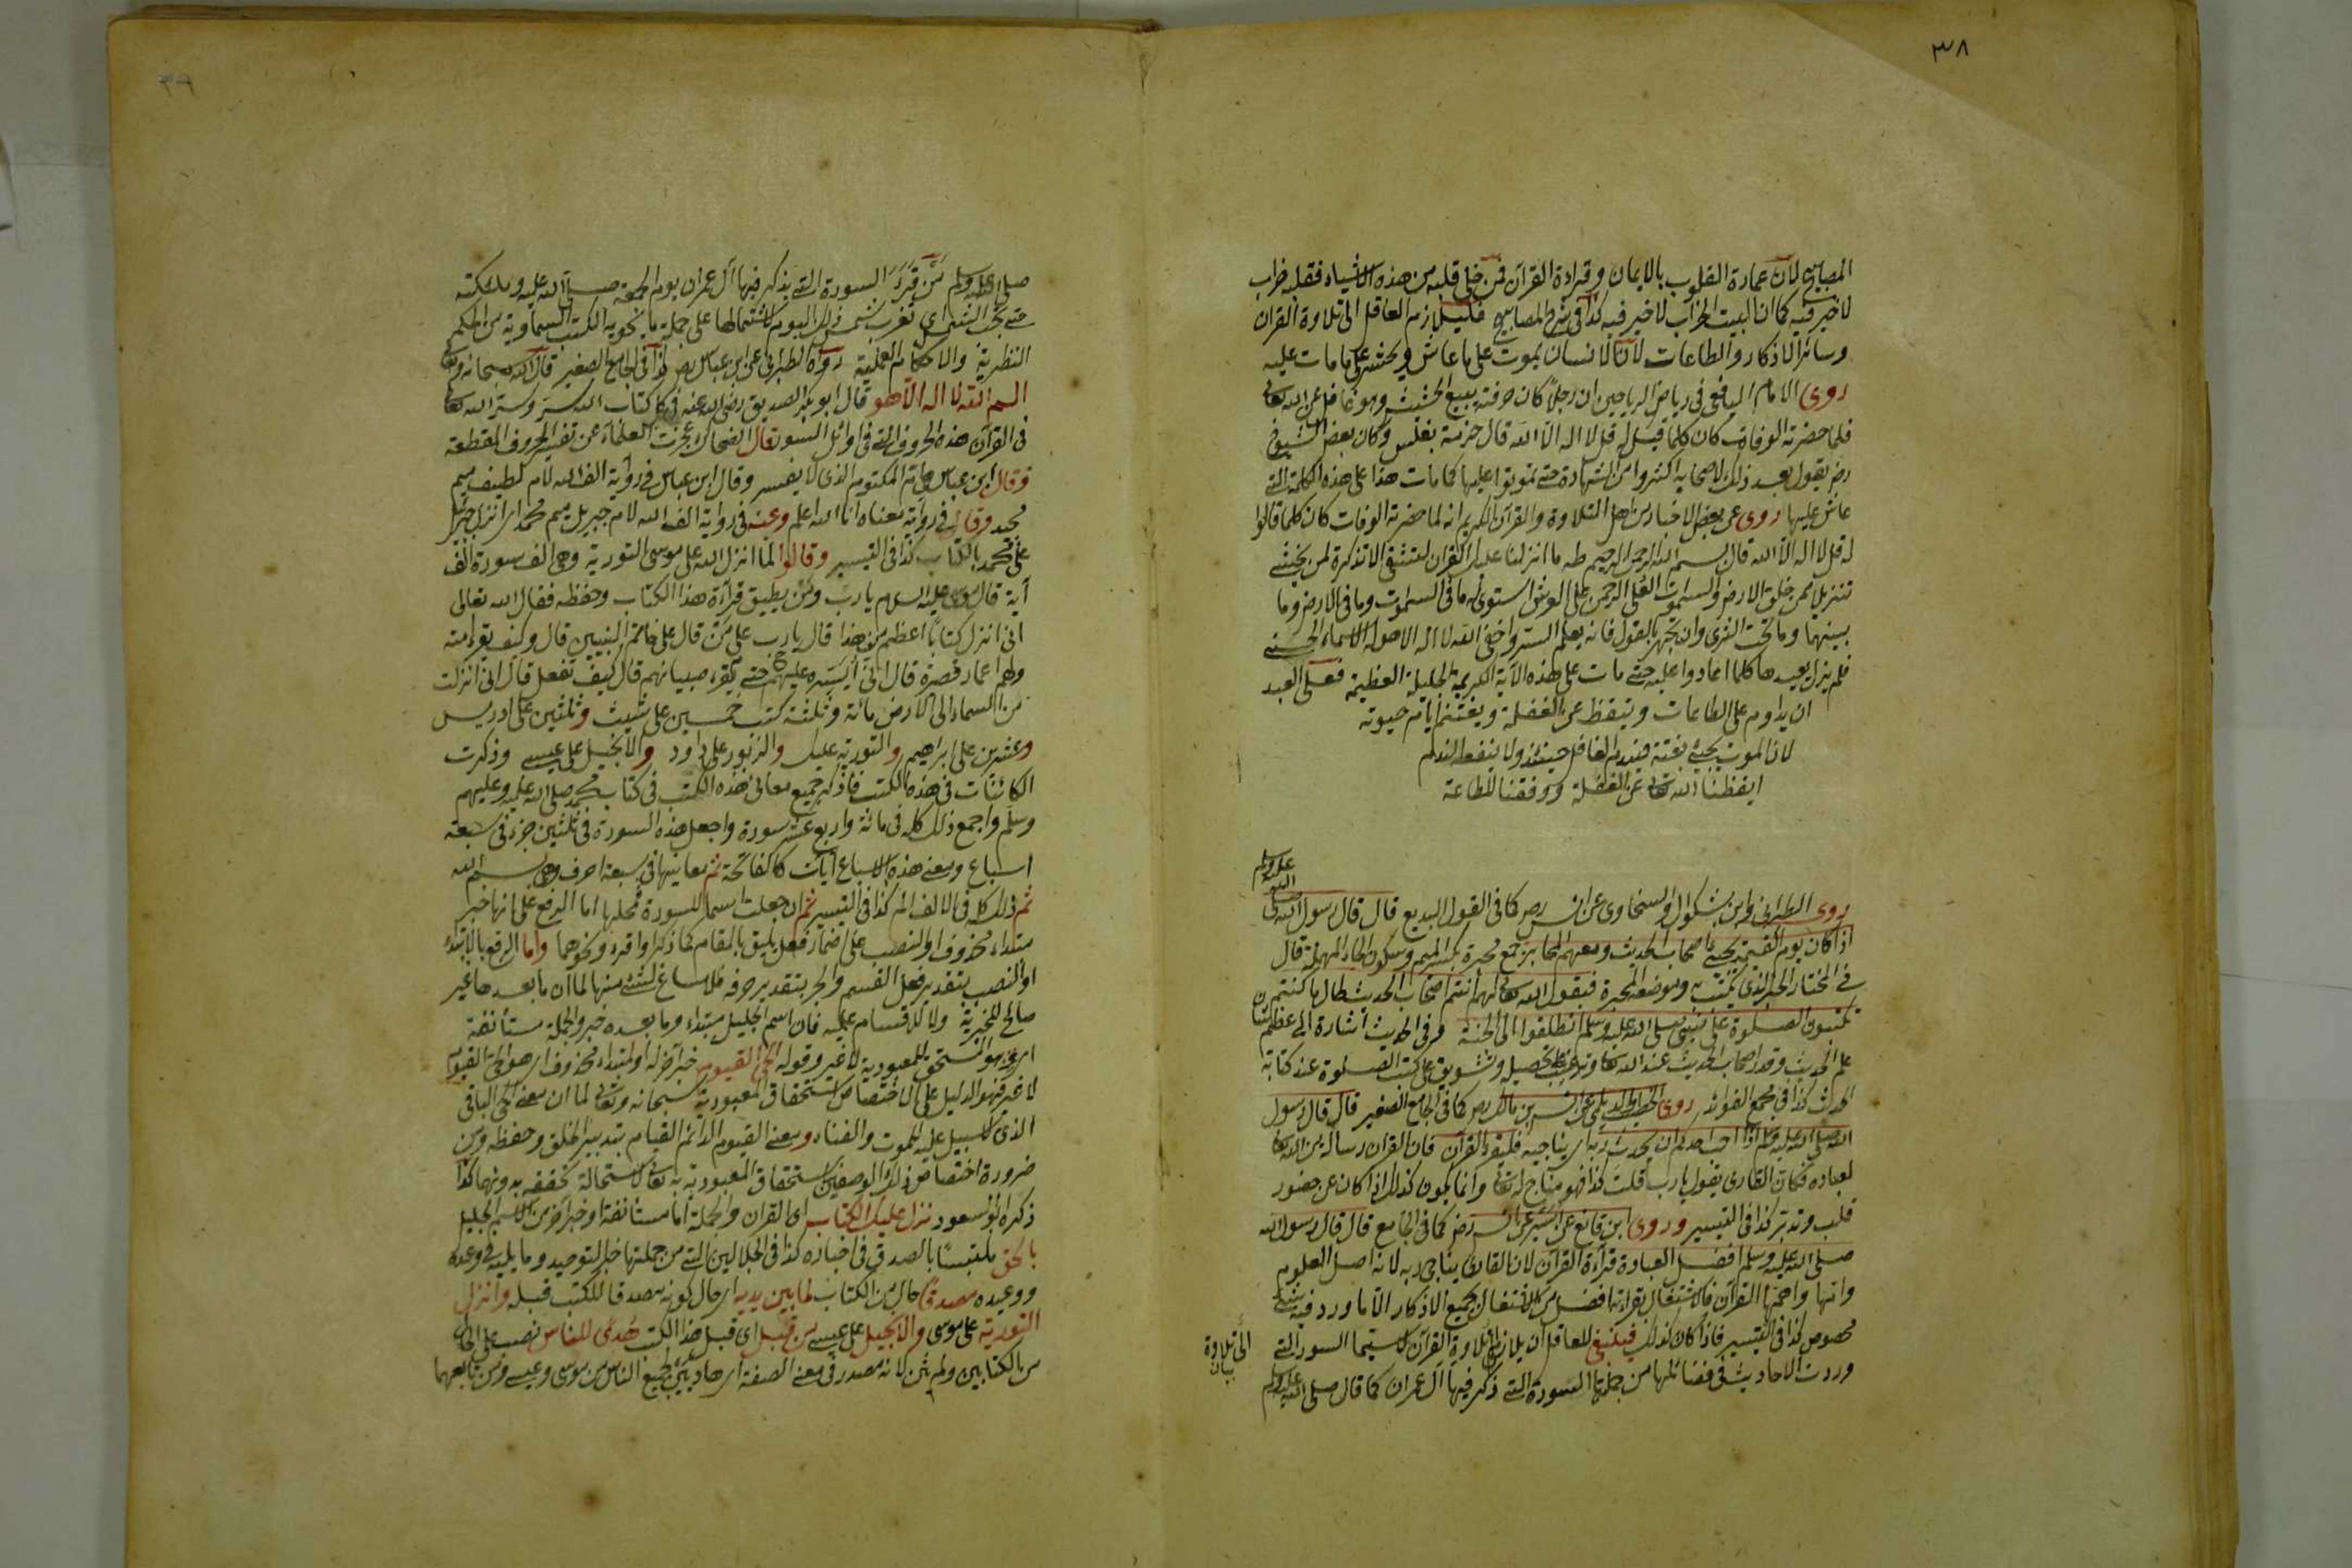 ٣٨
المصابيح لان عمارة القلوب بالايمان وقراءة القرآن فمن خلى قلبه من هذه الاشياء فقلبه خراب
لا خير فيه كما ان البيت الخراب لا خير فيه كذا فى شرح المصابيح فليلازم العاقل الى تلاوة القران
وسائر الاذكار والطاعات لان الانسان يموت على ما عاش ويحشر على ما مات عليه
روى الامام اليافعى فى رياض الرياحين ان رجلا كان حرفته يبيع الحشيش وهو غافل عن الله تعالى
فلما حضرته الوفات كان كلما قيل له قل لا اله الا الله قال حزمة بفلس وكان بعض الشيوخ
رضى يقول بعد ذلك لاصحابه اكثروا من الشهادة حتى تموتوا عليها كما مات هذا على هذه الكلمة التى
عاش عليها روى عن بعض الاخيار من اهل التلاوة والقرآن الكريم انه لما حضرته الوفات كان كلما قالوا
له قل لا اله الا الله قال بسم الله الرحمن الرحيم طه ما انزلنا عليك القران لتشقى الا تذكرة لمن يخشى
تنزيلا ممن خلق الارض والسموت العلى الرحمن على العرش استوى له ما فى السموت وما فى الارض وما
بينهما وما تحت الثرى وان تجهر بالقول فانه يعلم السر واخفى الله لا اله الا هو له الاسماء الحسنى
فلم يزل يعيدها كلما اعادوا عليه حتى مات على هذه الآية الكريمة الجليلة العظيمة فعلى العبد
ان يداوم على الطاعات ويتيقظ عن الغفلة ويغتنم ايام حيوته
لان الموت يجئ بغتة فيندم الغافل حينئذ ولا ينفعه الندم
ايقظنا الله تعالى عن الغفلة ووفقنا للطاعة
روى الطبرانى وابن بشكوال والسخاوى عن انس رض كما فى القول البديع قال قال رسول الله صلى الله عليه وسلم
اذا كان يوم القيمة يجئ اصحاب الحديث ومعهم المحابر جمع محبرة بكسر الميم وسكون الحاء المهملة قال
فى المختار الحبر الذى يكتب به وموضعه المحبرة فيقول الله تعالى لهم انتم اصحاب الحديث طال ما كنتم
تكتبون الصلوة على نبيى صلى الله عليه وسلم انطلقوا الى الجنة وفى الحديث اشارة الى عظم شان
علم الحديث وقدر اصحاب الحديث عند الله تعالى وترغيب على تحصيله وتشويق على كتب الصلوة عند كتابة
الحديث كذا فى مجمع الفوائد روى الخطيب والديلمى عن انس بن مالك رض كما فى الجامع الصغير قال قال رسول
الله صلى الله عليه وسلم اذا احب احدكم ان يحدث ربه اى يناجيه فليقرء القرآن فان القران رسالة من الله تعالى
لعباده فكان القارى يقول يارب قلت كذا فهو مناج له تعالى وانما يكون كذلك اذا كان عن حضور
قلب وتدبر كذا فى التيسير وروى ابن قانع عن اسير عن انس رض كما فى الجامع قال قال رسول الله
صلى الله عليه وسلم افضل العبادة قراءة القرآن لان القارئ يناجى ربه لانه اصل العلوم
وامها واهمها القرآن فالاشتغال بقراءته افضل من الاشتغال بجميع الاذكار الا ما ورد فيه شئ
مخصوص كذا فى التيسير فاذا كان كذلك فينبغى للعاقل ان يلازم الى تلاوة القرآن لا سيما السور التى
وردت الاحاديث فى فضائلها من جملتها السورة التى ذكر فيها آل عمران كما قال صلى الله عليه وسلم
الى تلاوة
بيان
صلى الله عليه وسلم من قرء السورة التى يذكر فيها آل عمران يوم الجمعة صلى الله عليه وملائكته
حتى تجب الشمس اى تغرب شمس ذلك اليوم لاشتمالها على جملة ما تحويه الكتب السماوية من الحكم
النظرية والاحكام العملية رواه الطبرانى عن ابن عباس رض كذا فى الجامع الصغير قال الله سبحانه وتعالى
الم الله لا اله الا هو قال ابو بكر الصديق رضى الله عنه فى كل كتاب الله سر وسر الله تعالى
فى القرآن هذه الحروف التى فى اوائل السور قال الضحاك عجزت العلماء عن تفسير الحروف المقطعة
وقال ابن عباس هى من المكتوم الذى لا يفسر وقال ابن عباس فى رواية الف الله لام لطيف ميم
مجيد وقال فى رواية معناه انا الله اعلم وعنه فى رواية الف الله لام جبريل ميم محمد اى انزل جبرئيل
على محمد بالكتاب كذا فى التيسير وقالوا لما انزل الله على موسى التورية وهى الف سورة الف
آية قال موسى عليه السلام يارب ومن يطيق قراءة هذا الكتاب وحفظه فقال الله تعالى
انى انزل كتابا اعظم من هذا قال يارب على من قال على خاتم النبيين قال وكيف تقرء امته
ولهم اعمار قصيرة قال انى ايسره عليهم حتى يقرء صبيانهم قال كيف تفعل قال انى انزلت
من السماء الى الارض مائة وثلثة كتب خمسين على شيث وثلثين على ادريس
وعشرين على ابراهيم والتورية عليك والزبور على داود والانجيل على عيسى وذكرت
الكائنات فى هذه الكتب فاذكر جميع معانى هذه الكتب فى كتاب محمد صلى الله عليه وعليهم
وسلم واجمع ذلك كله فى مائة واربع عشر سورة واجعل هذه السورة فى ثلثين جزء فى سبعة
اسباع ومعنى هذه الاسباع آيات كالفاتحة ثم معانيها فى سبعة احرف وهى بسم الله
ثم ذلك كله فى الالف الم كذا فى التيسير ثم ان جعلت اسما للسورة فمحلها اما الرفع على انها خبر
مبتداء محذوف او النصب على اضمار فعل يليق بالمقام كما ذكر او اقرء ونحوهما واما الرفع بالابتداء
او النصب بتقدير فعل القسم والجر بتقدير حرفه فلا مساغ لشئ منها لما ان ما بعدها غير
صالح للخبرية ولا للاقسام عليه فان اسم الجليل مبتداء وما بعده خبر والجملة مستأنفة
اى هو المستحق للمعبودية لا غير وقوله الحى القيوم خبر آخر له او لمبتداء محذوف اى هو الحى القيوم
لا غير فهو الدليل على الاختصاص استحقاق المعبودية سبحانه وتعالى لما ان معنى الحى الباقى
الذى لا سبيل عليه للموت والفناء ومعنى القيوم الدائم القيام بتدبير الخلق وحفظه ومن
ضرورة اختصاص ذلك الوصفين استحقاق المعبودية به تعالى لاستحالة تحققه بدونهما كذا
ذكره ابو السعود نزل عليك الكتاب اى القران والجملة اما مستأنفة او خبر آخر من الاسم الجليل
بالحق ملتبسا بالصدق فى اخباره كذا فى الجلالين التى من جملتها خبر التوحيد وما يليه فى وعده
ووعيده مصدقا حال من الكتاب لما بين يديه اى حال كونه مصدقا للكتب قبله وانزل
التورية على موسى والانجيل على عيسى من قبل اى قبل هذا الكتب هدى للناس نصب على الحال
من الكتابين ولم يثن لانه مصدر فى معنى الصفة اى هاديين لجميع الناس من موسى وعيسى ومن تابعهما